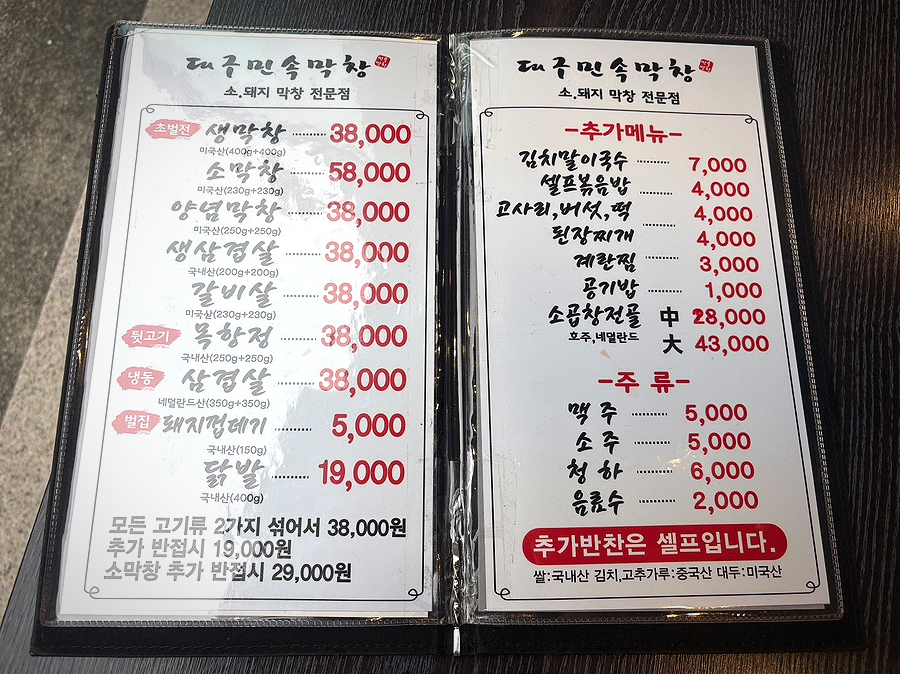 대구민속막창
소.돼지 막창 전문점
초벌전 생막창 38,000
미국산(400g+400g)
소막창 58,000
미국산(230g+230g)
양념막창 38,000
미국산(250g+250g)
생삼겹살 38,000
국내산(200g+200g)
갈비살 38,000
미국산(230g+230g)
뒷고기 목항정 38,000
국내산(250g+250g)
냉동 삼겹살 38,000
네덜란드산(350g+350g)
벌집 돼지껍데기 5,000
국내산(150g)
닭발 19,000
국내산(400g)
모든 고기류 2가지 섞어서 38,000원
추가 반접시 19,000원
소막창 추가 반접시 29,000원
대구민속막창
소.돼지 막창 전문점
-추가메뉴-
김치말이국수 7,000
셀프볶음밥 4,000
고사리,버섯,떡 4,000
된장찌개 4,000
계란찜 3,000
공기밥 1,000
소곱창전골 中 28,000
호주,네덜란드 大 43,000
-주 류-
맥 주 5,000
소 주 5,000
청 하 6,000
음료수 2,000
추가반찬은 셀프입니다.
쌀:국내산 김치,고추가루:중국산 대두:미국산